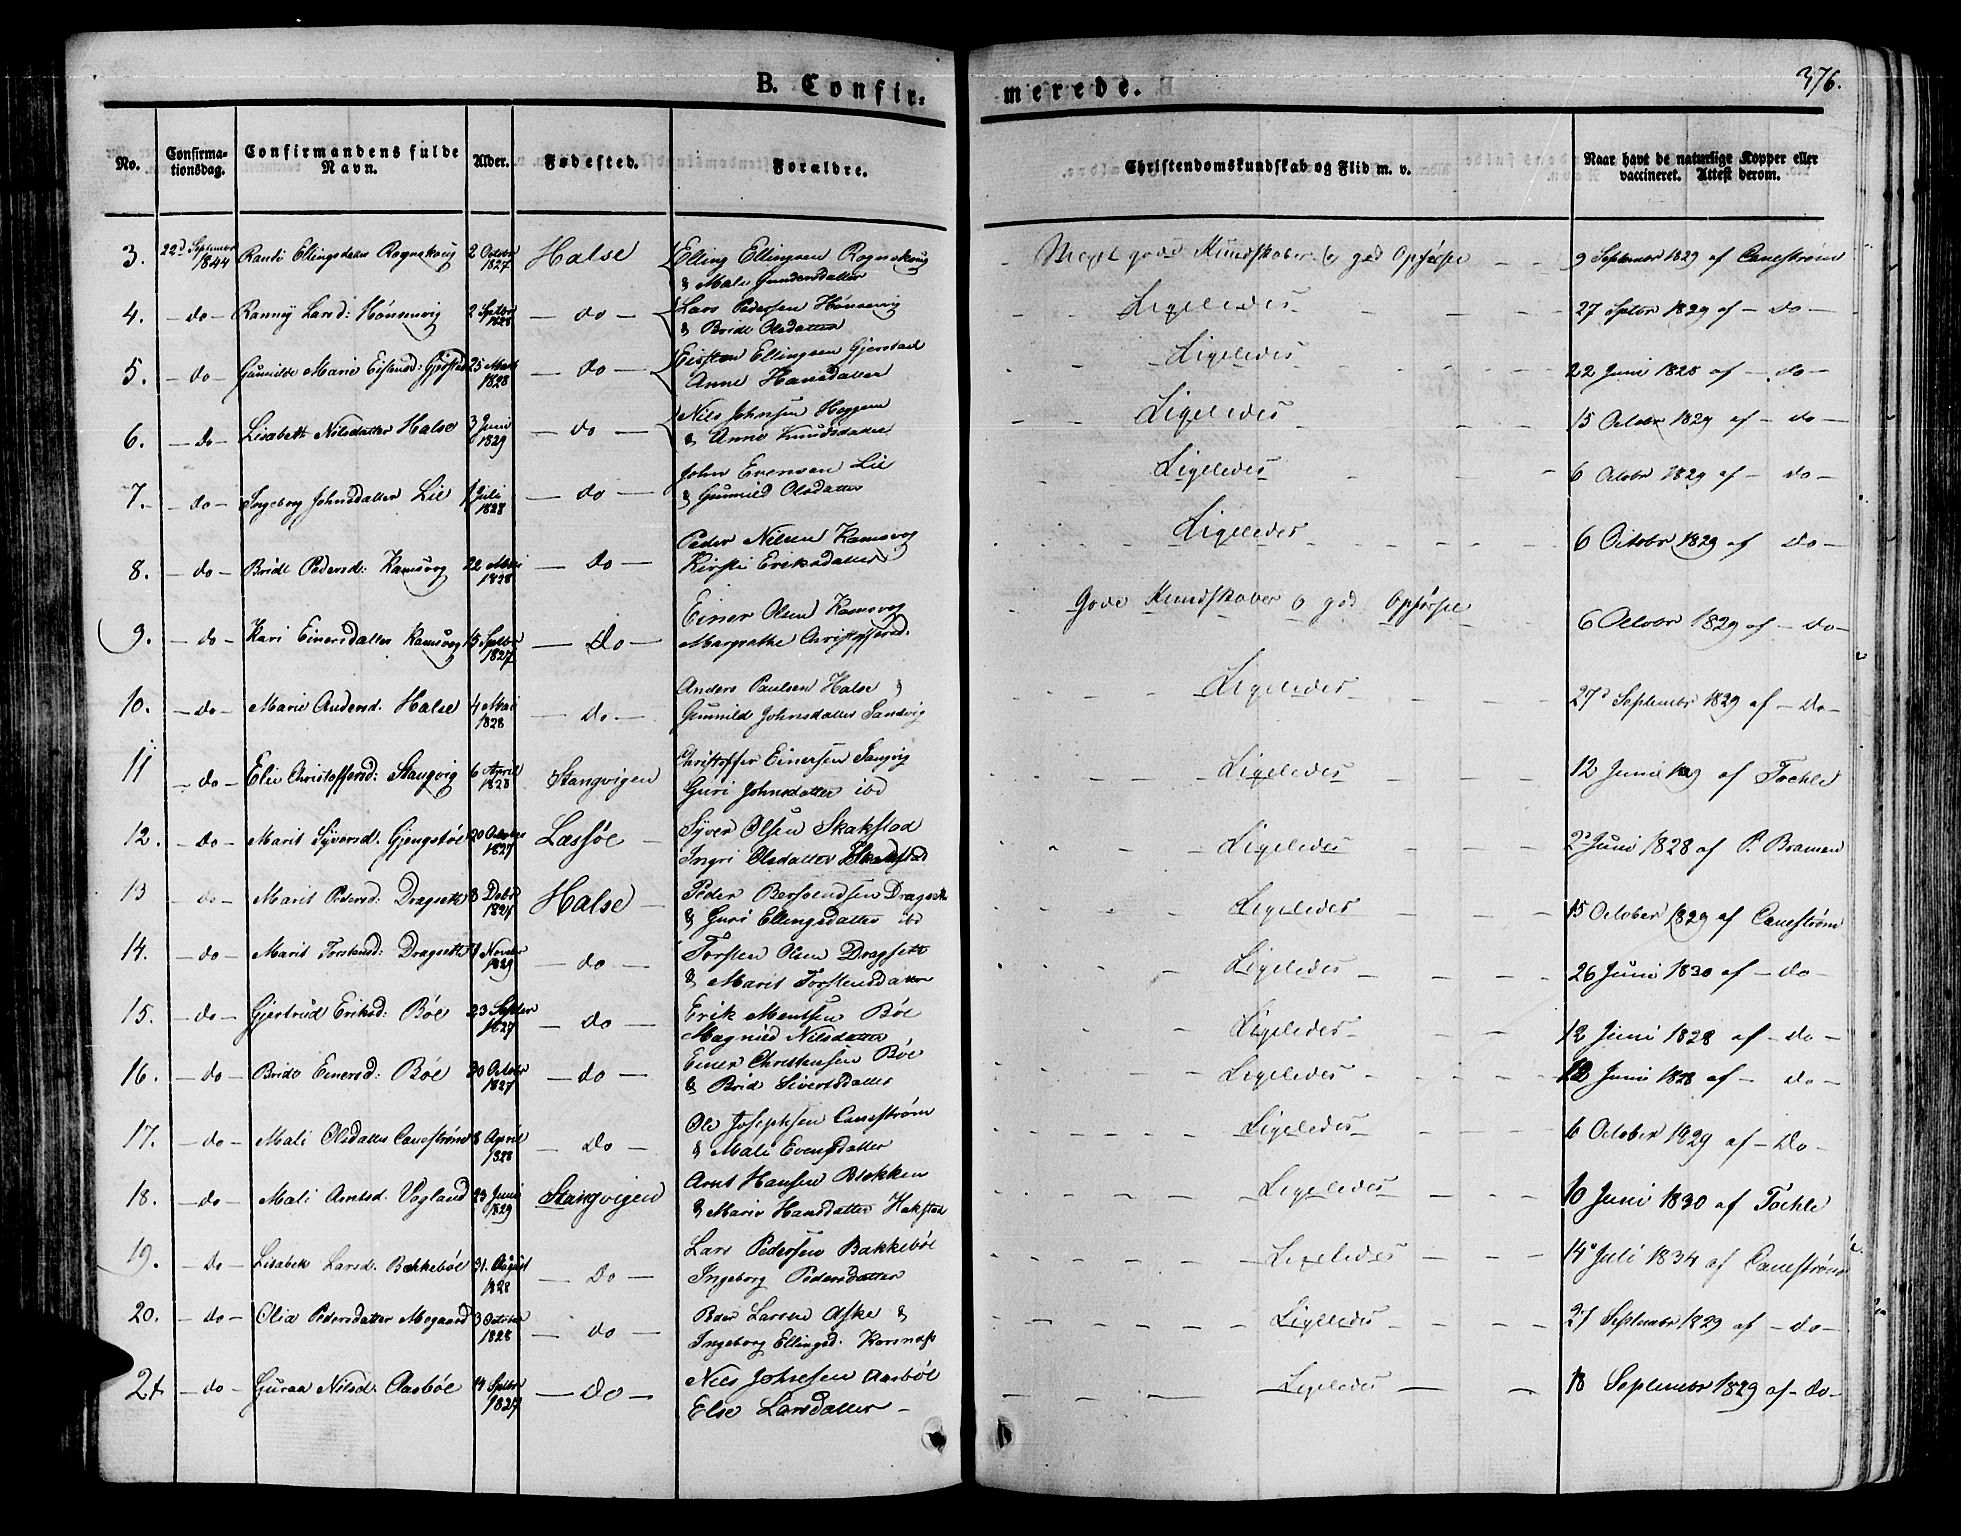 B. Confir-
merede.
376.
No.
Confirma-
tionsdag.
Confirmandens fulde
Navn.
Alder.
Fødested.
Forældre.
Christendomskundskab og Flid m. v.
Naar havt de naturlige Kopper eller
vaccineret. Attest derom.
3. 22d September 1844 Randi Ellingsdatter Rognskoug 2 Octobr 1827 Halse Elling Ellingsen Rognskoug
& Mali Gundersdatter
Meget gode Kundskaber og god Opførsel 9 September 1829 af Canestrøm
4. - do - Ranny Larsd: Hønsvig 2 Septbr 1828 - do - Lars Pedersen Hønsvig
& Bridt Olsdatter
Ligeledes 27 Septbr 1829 af - do -
5. - do - Gunnilde Marie Eistensd: Gjerstad 25 Marts 1828 - do - Eisten Ellingsen Gjerstad
Anne Hansdatter
Ligeledes 22 Juni 1828 af - do -
6. - do - Lisabeth Nilsdatter Halse 3 Juni 1829 - do - Nils Johnsen Heggem
& Anne Knudsdatter
Ligeledes 15 Octobr 1829 af - do -
7. - do - Ingeborg Johnsdatter Lie 1 Juli 1828 - do - John Evensen Lie
& Gunnild Olsdatter
Ligeledes 6 Octobr 1829 af - do -
8. - do - Bridt Pedersd: Kamsvog 22 Mai 1828 - do - Peder Nilsen Kamsvog
Kirsti Eriksdatter
Ligeledes 6 Octobr 1829 af do -
9. - do - Kari Einersdatter Kamsvog 15 Septbr 1827 - do - Einer Olsen Kamsvog
Margrethe Christoffersd.
Gode Kundskaber o god Opførsel 6 Octobr 1829 af - do -
10. - do - Marie Andersd. Halse 4 Mai 1828 - do - Anders Paulsen Halse &
Gunnild Johnsdatter Sandvig
Ligeledes 27d Septembr 1829 af - do -
11 - do - Elie Christoffersd: Stangvig 6 April 1828 Stangvigen Christoffer Einersen Sangvig
Guri Johnsdatter ibd
Ligeledes 12 Juni af Tochle
12. - do - Marit Syversd. Gjengstøe 20 October 1827 Læssøe - Syver Olsen Skakstad
Ingri Olsdatter
Ligeledes 2d Juni 1828 af P. Bramen
13 do - Marit Pedersd: Dragseth 8 Debr Halse - Peder Bersvendsen Dragseth
& Guri Ellingsdatter ibd
Ligeledes 15 October 1829 af Canestrøm
14. - do - Marit Torstensd: Dragseth Novbr 1829 - do - Torsten Olsen Dragseth
& Marit Torstensdatter
Ligeledes 26 Juni 1830 af - do -
15. - do - Gjertrud Eriksd: Bøe 23 Septbr 1827 - do - Erik Mentsen Bøe
Magnild Nilsdatter
Ligeledes 12 Juni 1828 af - do -
16. - do - Bride Einersd: Bøe 30 Octobr 1827 - do - Einer Christensen Bøe
& Brid Sivertsdatter
Ligeledes 12 Juni 1828 af - do -
17. - do - Mali Olsdatter Canestrøm 8 April 1828 - do - Ole Josephsen Canestrøm
& Mali Evensdatter
Ligeledes 6 October 1829 af - do -
18. - do - Mali Arntsd. Vagland 23 Juni 1829 Stangvigen Arnt Hansen Blekken
& Marie Hansdatter Hakstad
Ligeledes 10 Juni 1830 af Tochle
19. - do - Lisabeth Larsd. Bakkebøe 31. August 1828 - do - Lars Pedersen Bakkebøe
Ingeborg Pedersdatter
Ligeledes 14d Juli 1834 af Canestrøm
20. - do - Olia Pedersdatter Mogaard 3 October 1828 - do - Peder Larsen Aske &
Ingeborg Ellingsd. Korsnæs
Ligeledes 27 Septembr 1829 af - do -
21 - do - Guraa Nilsd: Aasbøe 14 Septbr 1827 - do - Nils Johnsen Aasbøe
Else Larsdatter -
Ligeledes 18 Septembr 1829 af - do -